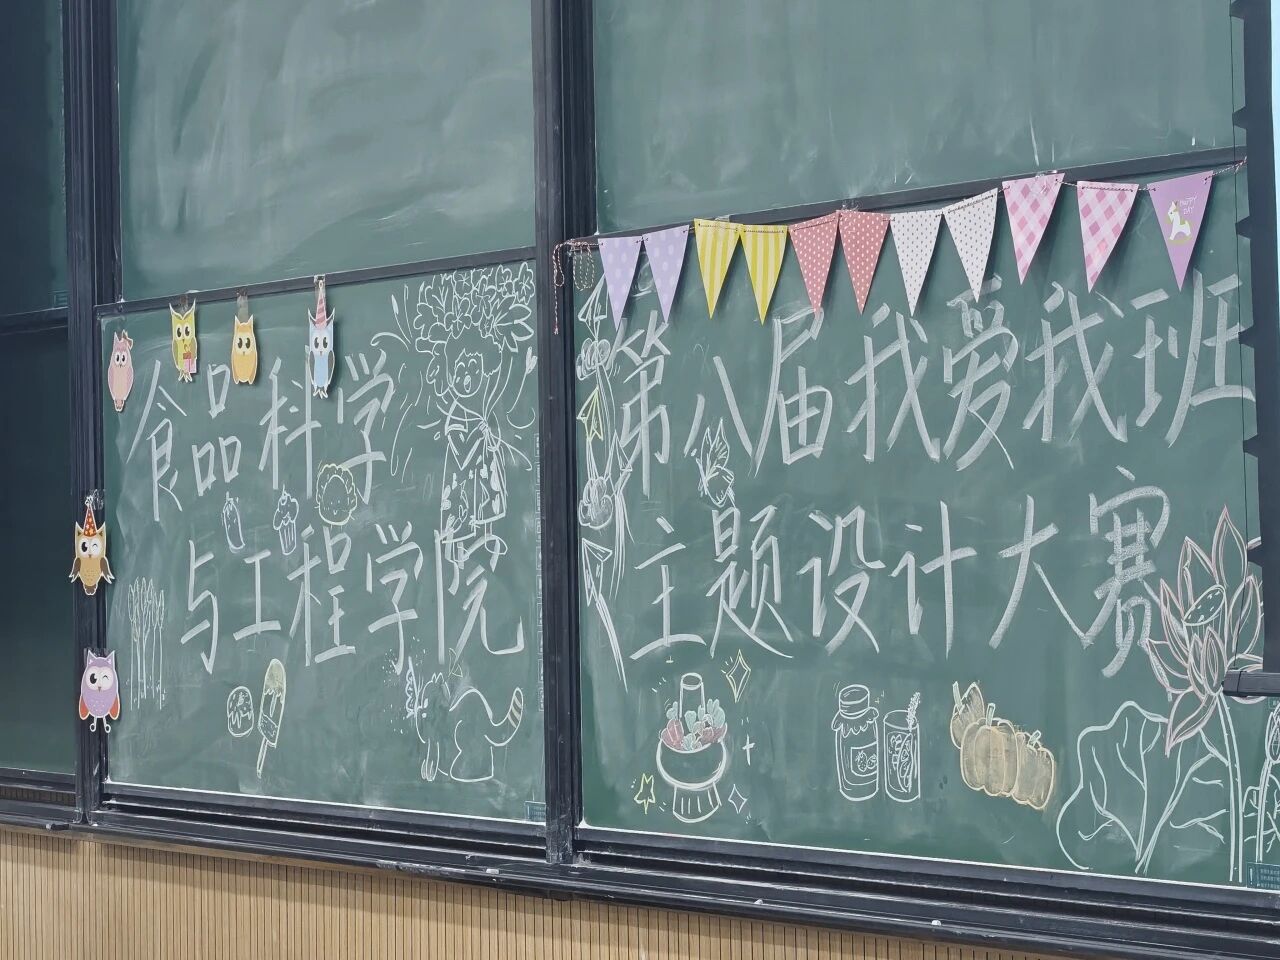 食品科学
与工程学院
第八届我爱我班
主题设计大赛
HAPPY
DAY